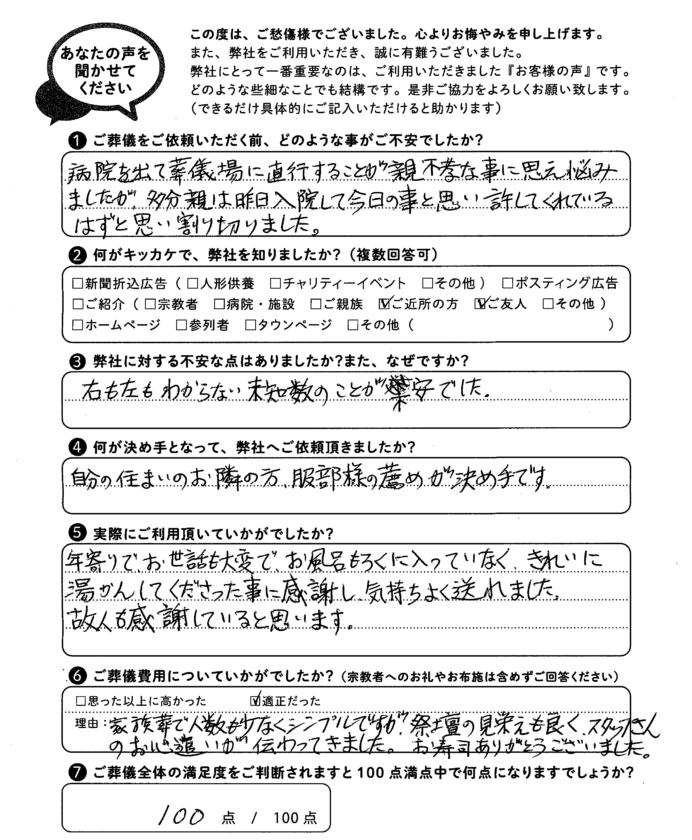 あなたの声を
聞かせて
ください
この度は、ご愁傷様でございました。心よりお悔やみを申し上げます。
また、弊社をご利用いただき、誠に有難うございました。
弊社にとって一番重要なのは、ご利用いただきました『お客様の声』です。
どのような些細なことでも結構です。是非ご協力をよろしくお願い致します。
(できるだけ具体的にご記入いただけると助かります)
❶ ご葬儀をご依頼いただく前、どのような事がご不安でしたか?
病院を出て葬儀場に直行することが親不孝な事に思え悩み
ましたが、多分親は昨日入院して今日の事と思い許してくれている
はずと思い割り切りました。
❷ 何がキッカケで、弊社を知りましたか?(複数回答可)
□新聞折込広告(□人形供養 □チャリティーイベント □その他) □ポスティング広告
□ご紹介(□宗教者 □病院・施設 □ご親族 ☑ご近所の方 ☑ご友人 □その他)
□ホームページ □参列者 □タウンページ □その他( )
❸ 弊社に対する不安な点はありましたか?また、なぜですか?
右も左もわからない未知数のことが 安でした。
❹ 何が決め手となって、弊社へご依頼頂きましたか?
自分の住まいのお隣の方、服部様の薦めが決め手です。
❺ 実際にご利用頂いていかがでしたか?
年寄りで、お世話も大変で、お風呂もろくに入っていなく、きれいに
湯かんしてくださった事に感謝し、気持ちよく送れました。
故人も感謝していると思います。
❻ ご葬儀費用についていかがでしたか?(宗教者へのお礼やお布施は含めずご回答ください)
□思った以上に高かった ☑適正だった
理由:家族葬で人数も少なくシンプルですが、祭壇の見栄えも良く、スタッフさん
のお心遣いが伝わってきました。お寿司ありがとうございました。
❼ ご葬儀全体の満足度をご判断されますと100点満点中で何点になりますでしょうか?
100 点 / 100点